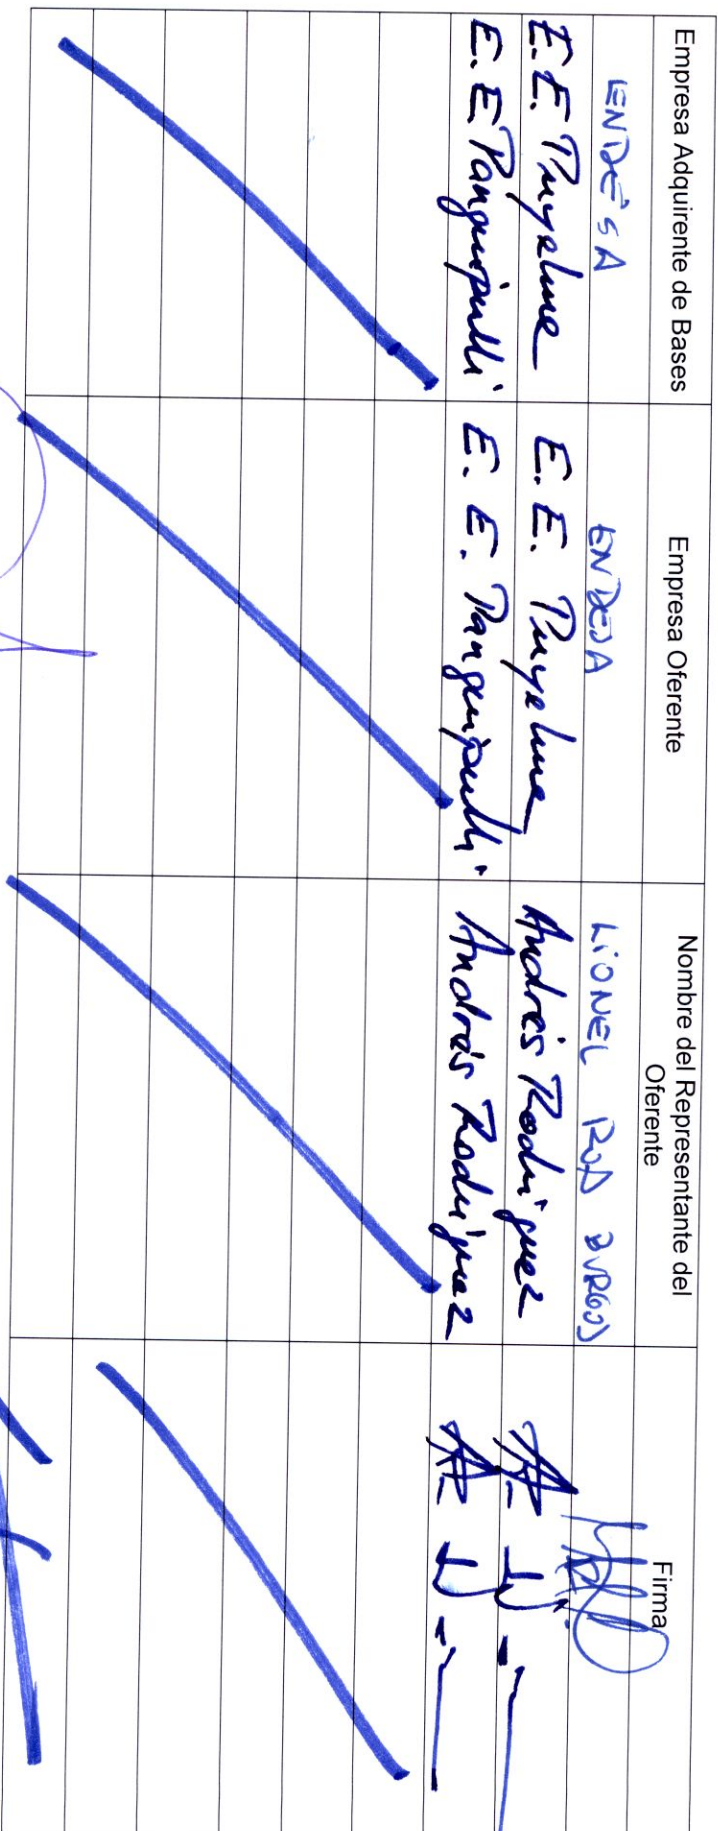 Empresa Adquirente de Bases Empresa Oferente Nombre del Representante del Oferente Firma
ENDESA ENDESA LIONEL ROA BURGOS
E.E. Puyehue E. E. Puyehue Andrés Rodriguez
E. E Panguipulli E. E. Panguipulli Andrés Rodriguez